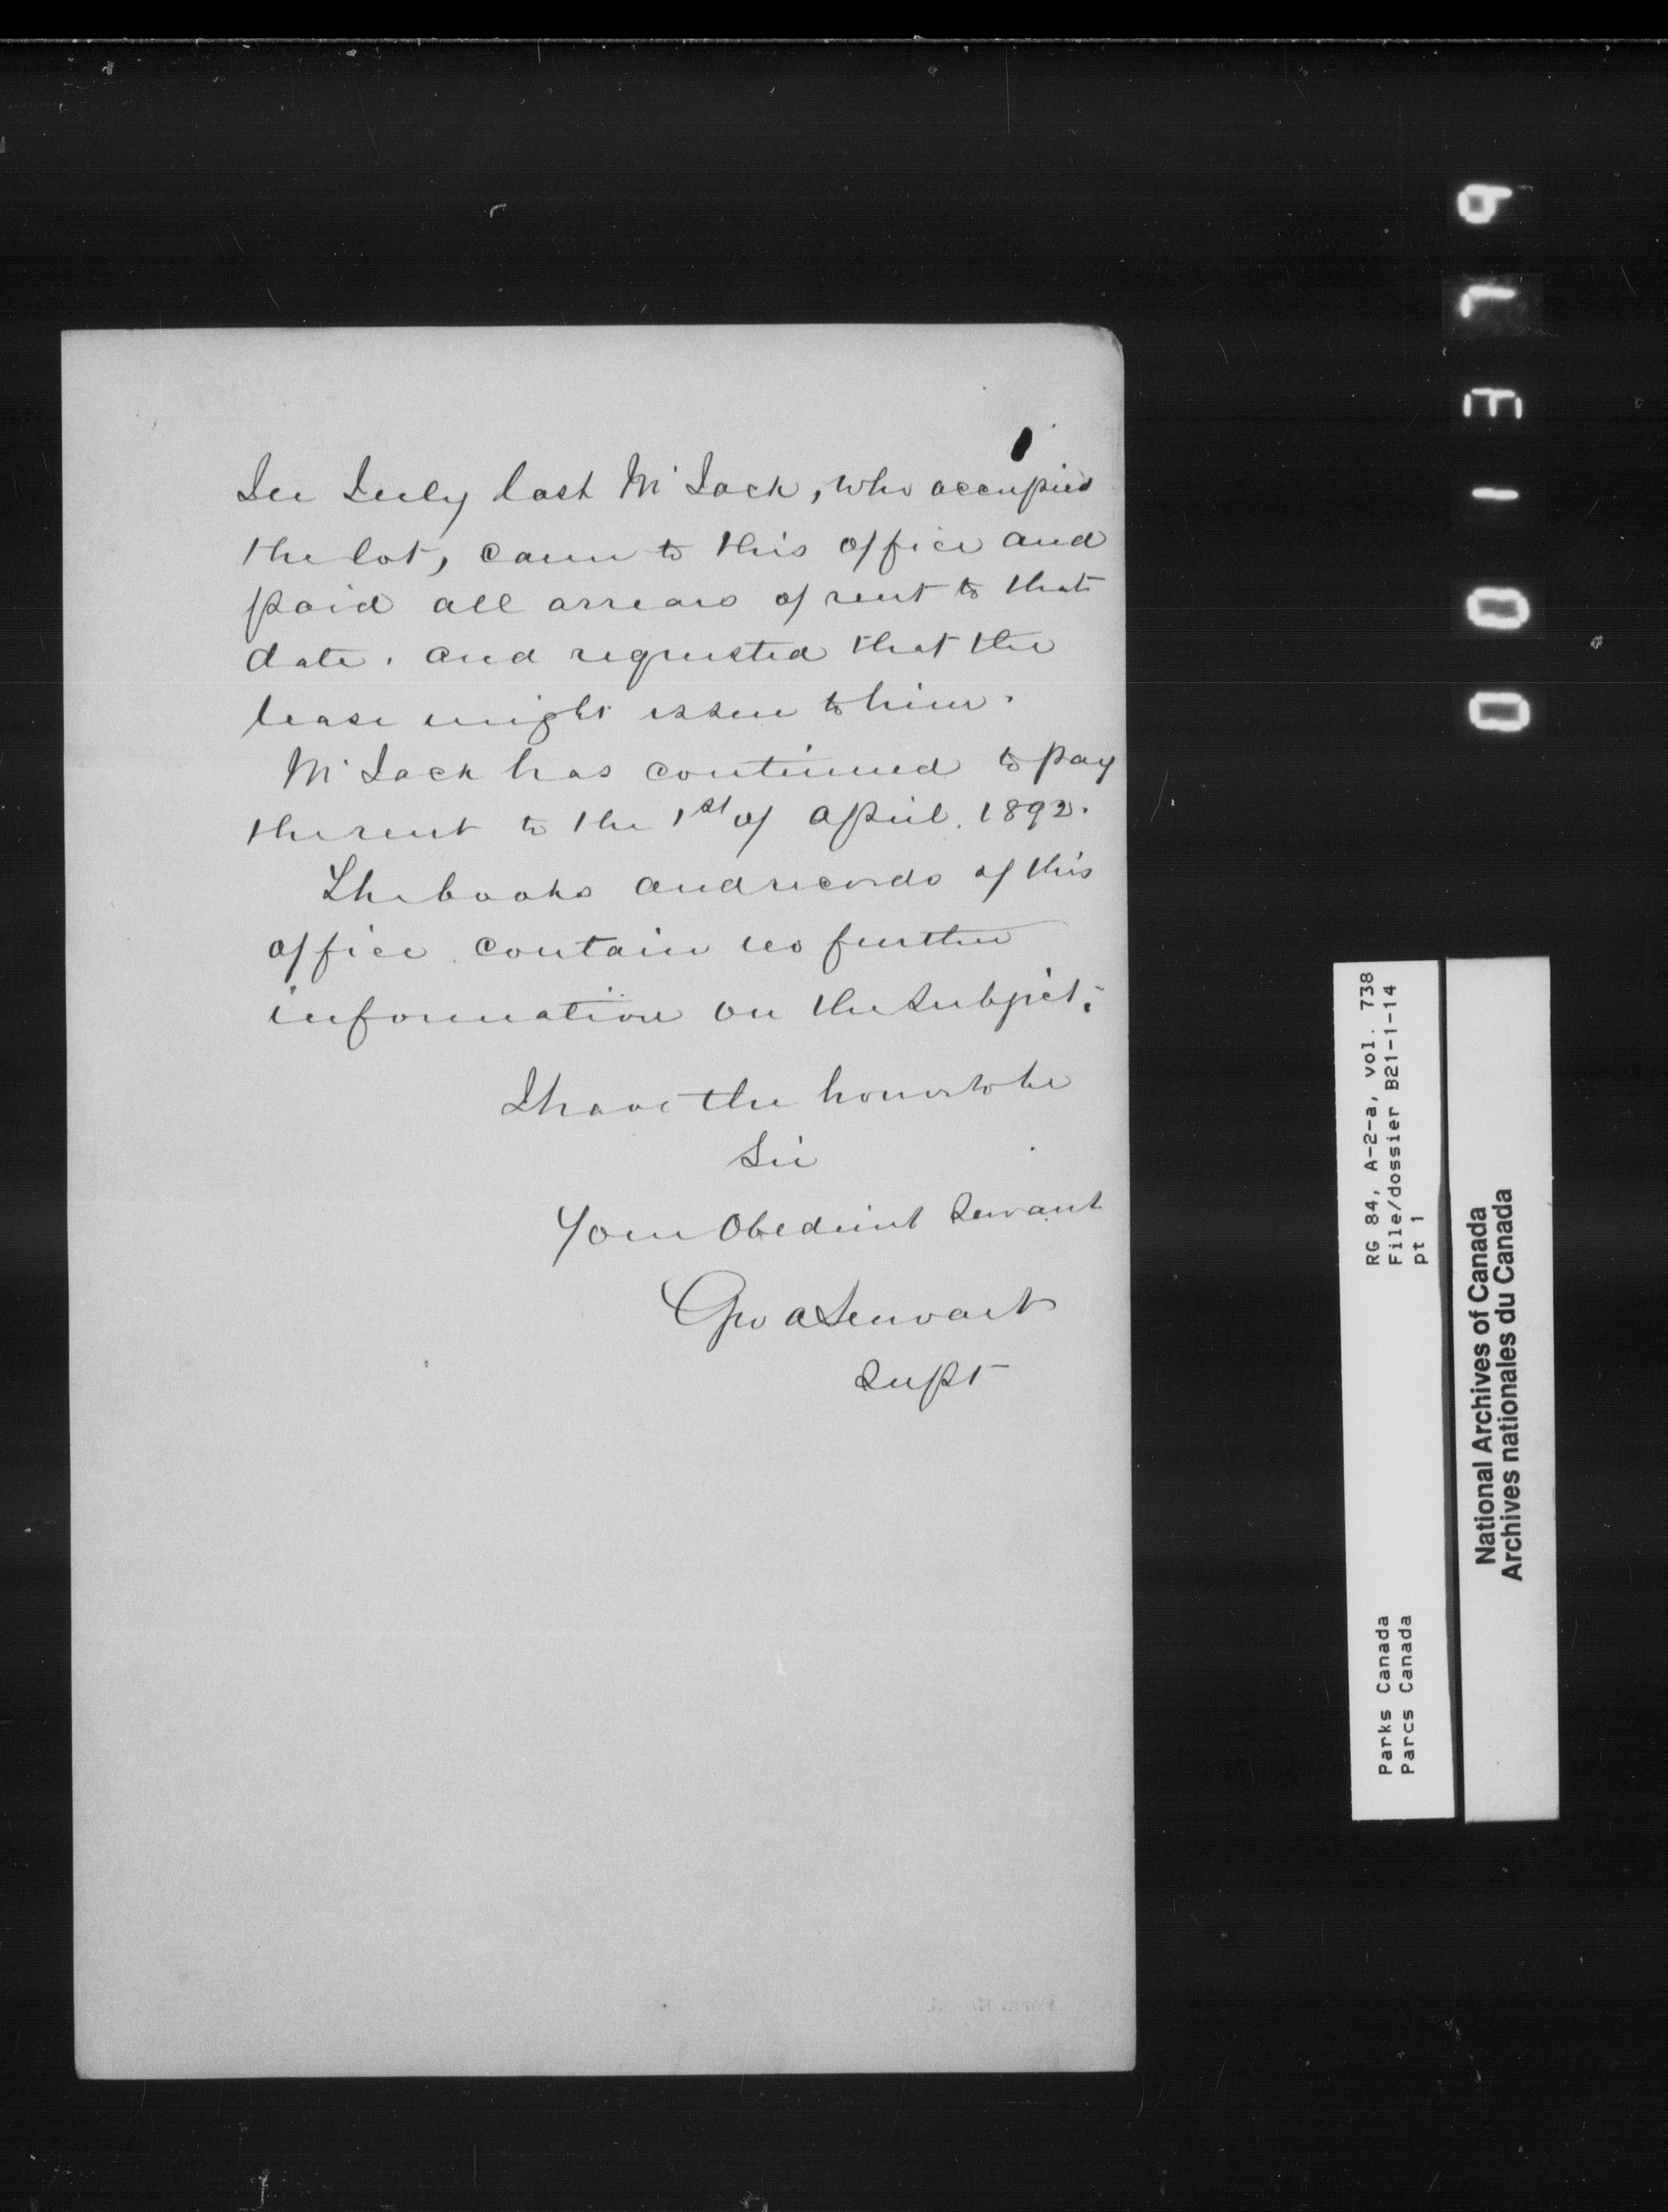 In July last Mr Jack, who occupied
the lot, came to this office and
paid all arrears of rent to that
date. and requested that the
lease might issue to him.
Mr Jack has continued to pay
the rent to the 1st of April. 1892.
The books and records of this
office contain no further
information on the subject.
I have the honor to be
Sir
Your Obedient Servant
Geo A Stewart
Supt
001379
RG 84, A-2-a, vol. 738
File/dossier B21-1-14
pt 1
Parks Canada
Parcs Canada
National Archives of Canada
Archives nationales du Canada